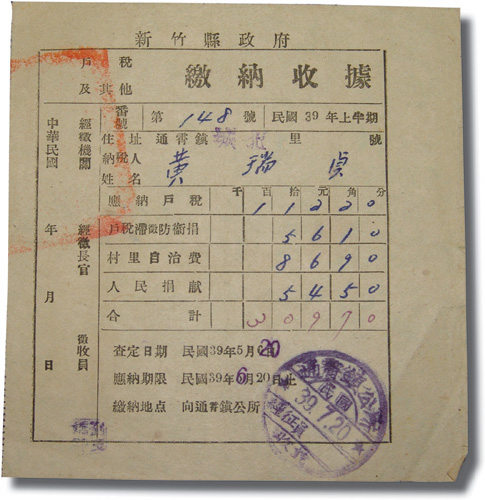 新竹縣政府
戶稅及其他 繳納收據
番號 第 148 號 民國39年上半期
住址 通霄鎮 城北 里 號
納稅人姓名 黃瑞貞
千百拾元角分
應納戶稅 11220
戶稅帶徵防衛捐 5610
村里自治費 8690
人民捐献 5450
合計 30970
查定日期 民國39年5月 20
應納期限 民國39年6月20日止
繳納地點 向通霄鎮公所
經徵機關 經徵長官 徵收員
中華民國 年 月 日
通霄鎮公所
民國
39.7.20
經征員